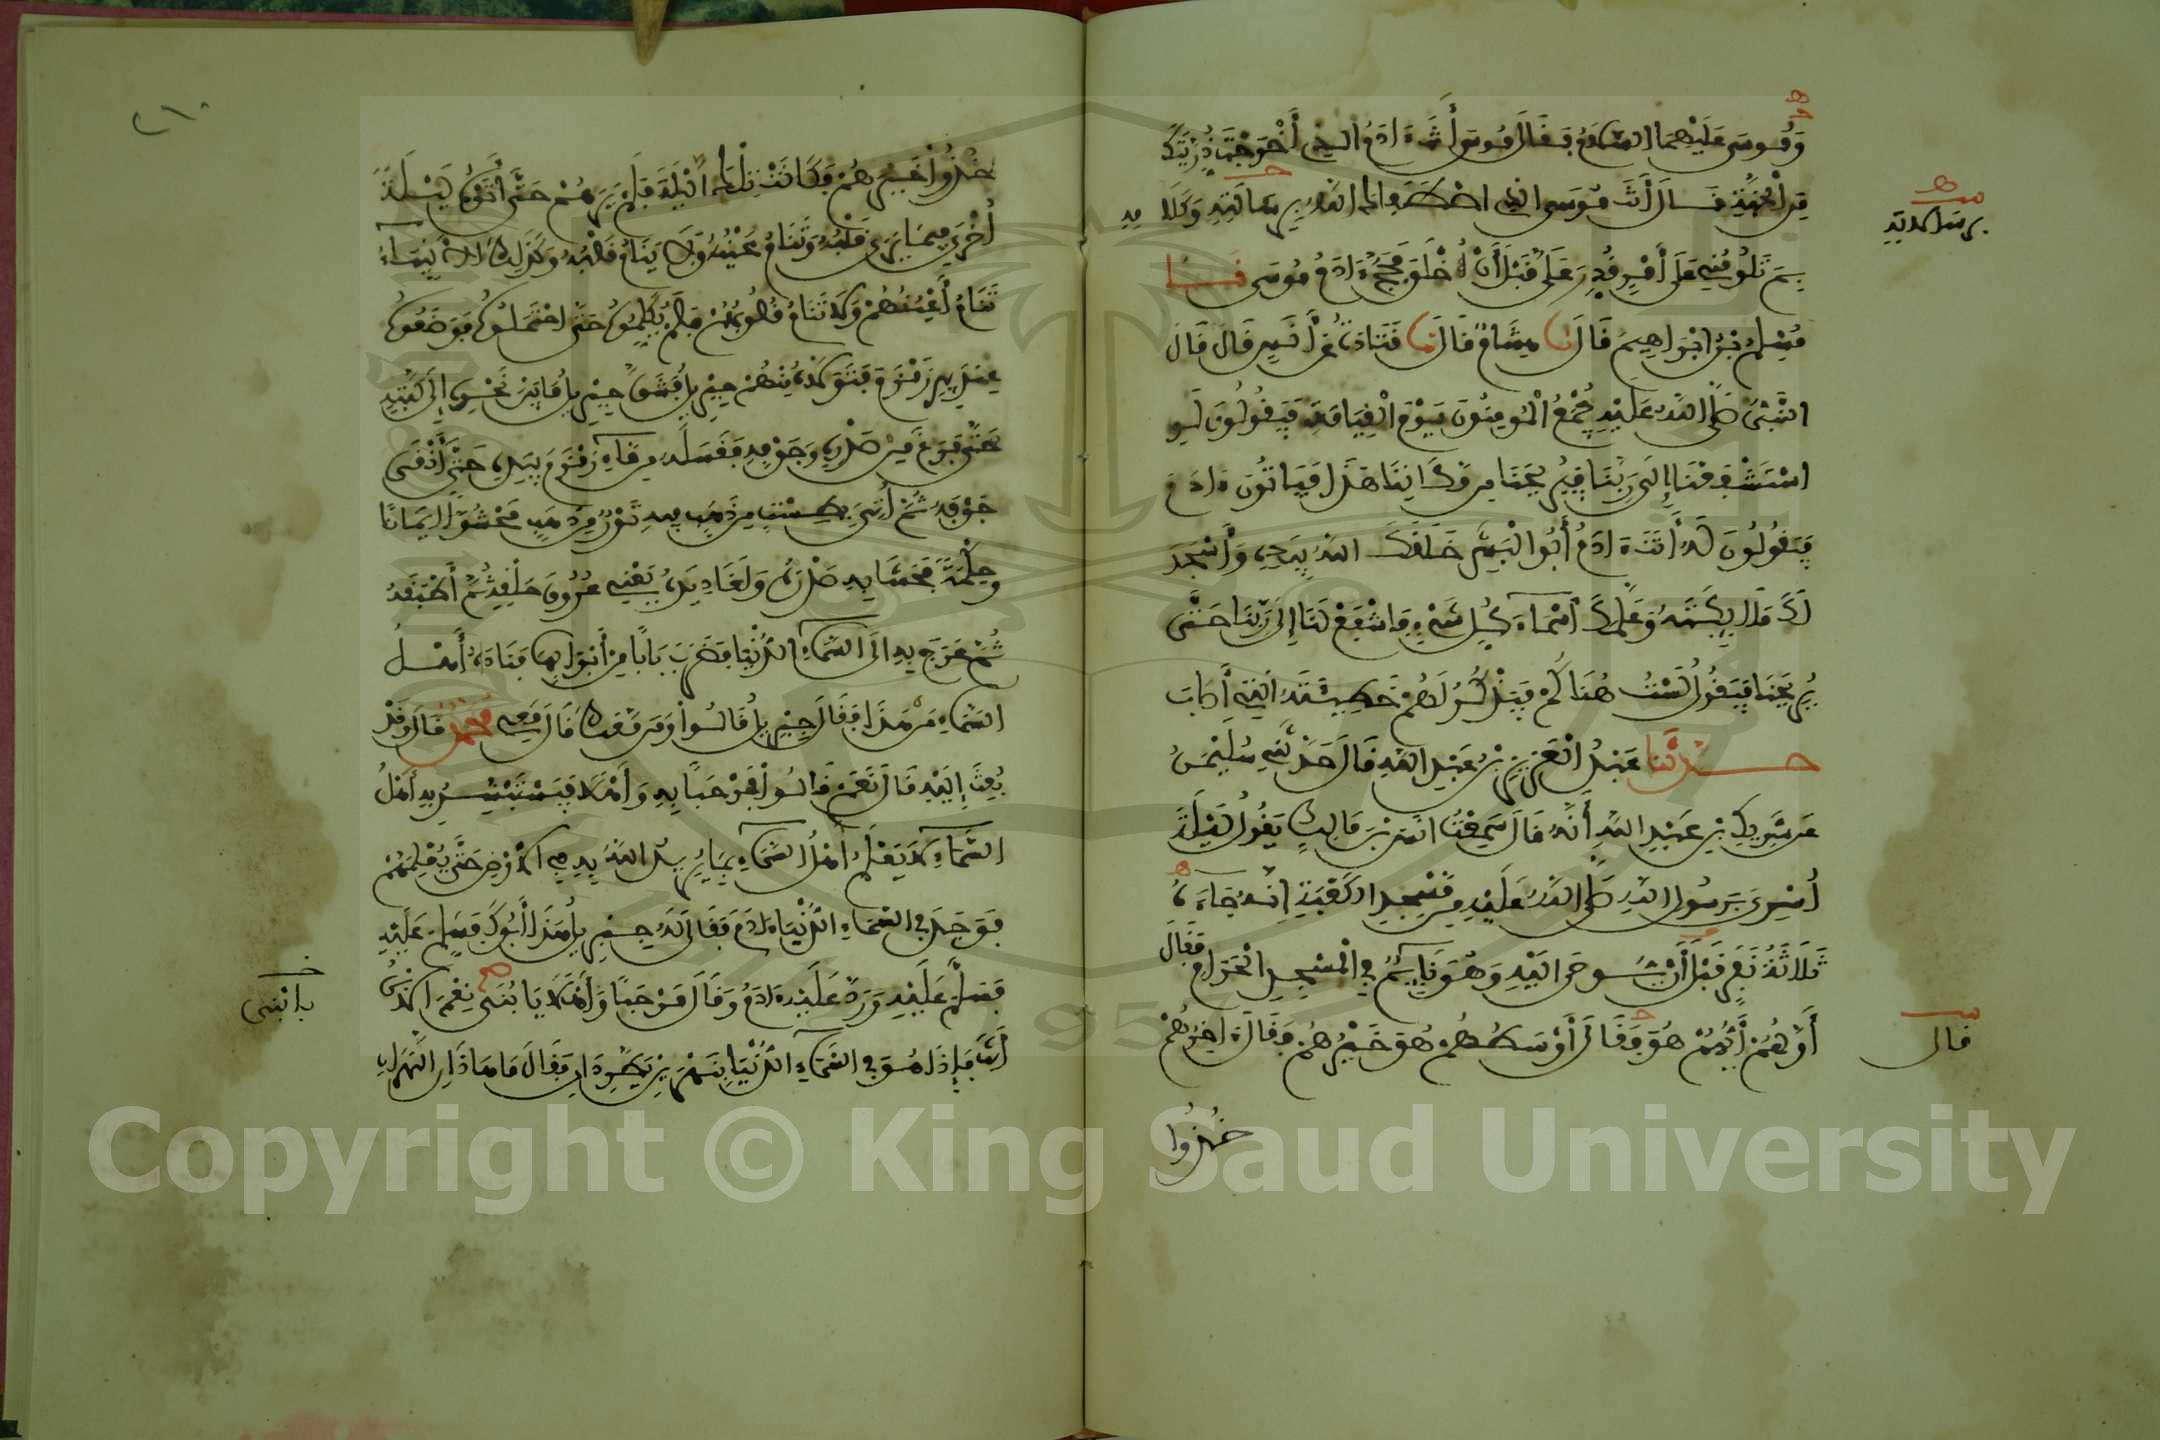 وَمُوسَى عَلَيْهِمَا السلام فقال موسى أَنْتَ ءَادَمُ الذي أَخْرَجْتَ ذُرِّيَّتَكَ
مِنَ الْجَنَّةِ قال أَنْتَ مُوسَى الذي اصطفاك اللهُ برسالته وكلامه
برسالاته
بِمَ تَلُومُنِي عَلَى أَمْرٍ قُدِّرَ عَلَيَّ قَبْلَ أَنْ أُخْلَقَ فَحَجَّ ءَادَمُ مُوسَى حدثنا
مُسْلِمُ بْنُ ابْرَاهِيمَ قَالَ نا هِشَامٌ قَالَ نا قَتَادَةُ عَنْ أَنَسٍ قَالَ قَالَ
النَّبِيُّ صَلَّى اللهُ عَلَيْهِ يُجْمَعُ الْمُومِنُونَ يَوْمَ الْقِيَامَةِ فَيَقُولُونَ لَوِ
اسْتَشْفَعْنَا إِلَى رَبِّنَا فَيُرِيحُنَا مِن مَكَانِنَا هَذَا فَيَاتُونَ ءَادَمَ
فَيَقُولُونَ لَهُ أَنْتَ ءَادَمُ أَبُو الْبَشَرِ خَلَقَكَ اللهُ بِيَدِهِ وَأَسْجَدَ
لَكَ مَلَائِكَتَهُ وَعَلَّمَكَ أَسْمَاءَ كُلِّ شَيْءٍ فَاشْفَعْ لَنَا إِلَى رَبِّنَا حَتَّى
يُرِيحَنَا فَيَقُولُ لَسْتُ هُنَاكُمْ فَيَذْكُرُ لَهُمْ خَطِيئَتَهُ الَّتِي أَصَابَ
حَدَّثَنَا عَبْدُ الْعَزِيزِ بْنُ عَبْدِ اللهِ قَالَ حَدَّثَنِي سُلَيْمَنُ
عَن شَرِيكِ بْنِ عَبْدِ اللهِ أَنَّهُ قَالَ سَمِعْتُ انَسَ بْنَ مَالِكٍ يَقُولُ لَيْلَةَ
أُسْرِيَ بِرَسُولِ اللهِ صَلَّى اللهُ عَلَيْهِ مِن مَسْجِدِ الْكَعْبَةِ إِنَّهُ جَاءَهُ
ثَلَاثَةُ نَفَرٍ قَبْلَ أَنْ يُوحَى إِلَيْهِ وَهُوَ نَائِمٌ فِي الْمَسْجِدِ الْحَرَامِ فَقَالَ
أَوَّلُهُمْ أَيُّهُمْ هُوَ فَقَالَ أَوْسَطُهُمْ هُوَ خَيْرُهُمْ فَقَالَ ءَاخِرُهُمْ
قال
خُذُوا
٢١٠
خُذُوا خَيْرَهُمْ فَكَانَتْ تِلْكَ اللَّيْلَةَ فَلَمْ يَرَهُمْ حَتَّى أَتَوْهُ لَيْلَةً
أُخْرَى فِيمَا يَرَى قَلْبُهُ وَتَنَامُ عَيْنُهُ وَلَا يَنَامُ قَلْبُهُ وَكَذَلِكَ الَانْبِيَاءُ
تَنَامُ أَعْيُنُهُمْ وَلَا تَنَامُ قُلُوبُهُمْ فَلَمْ يُكَلِّمُوهُ حَتَّى احْتَمَلُوهُ فَوَضَعُوهُ
عِنْدَ بِيرِ زَمْزَمَ فَتَوَلَّاهُ مِنْهُمْ جِبْرِيلُ فَشَقَّ جِبْرِيلُ مَا بَيْنَ نَحْرِهِ إِلَى لَبَّتِهِ
حَتَّى فَرَغَ مِنْ صَدْرِهِ وَجَوْفِهِ فَغَسَلَهُ مِن مَاءِ زَمْزَمَ بِيَدِهِ حَتَّى أَنْقَى
جَوْفَهُ ثُمَّ أُتِيَ بِطَسْتٍ مِن ذَهَبٍ فِيهِ تَوْرٌ مِن ذَهَبٍ مَحْشُوًّا إِيمَانًا
وَحِكْمَةً فَحَشَا بِهِ صَدْرَهُ وَلَغَادِيدَهُ يَعْنِي عُرُوقَ حَلْقِهِ ثُمَّ أَطْبَقَهُ
ثُمَّ عَرَجَ بِهِ إِلَى السَّمَاءِ الدُّنْيَا فَضَرَبَ بَابًا مِنْ أَبْوَابِهَا فَنَادَاهُ أَهْلُ
السَّمَاءِ مَنْ هَذَا فَقَالَ جِبْرِيلُ قَالُوا وَمَن مَعَكَ قَالَ مَعِي مُحَمَّدٌ قَالَ وَقَدْ
بُعِثَ إِلَيْهِ قَالَ نَعَمْ قَالُوا فَمَرْحَبًا بِهِ وَأَهْلًا فَيَسْتَبْشِرُ بِهِ أَهْلُ
السَّمَاءِ لَا يَعْلَمُ أَهْلُ السَّمَاءِ بِمَا يُرِيدُ اللهُ بِهِ فِي الَارْضِ حَتَّى يُعْلِمَهُمْ
فَوَجَدَ فِي السَّمَاءِ الدُّنْيَا ءَادَمَ فَقَالَ لَهُ جِبْرِيلُ هَذَا أَبُوكَ فَسَلِّمْ عَلَيْهِ
فَسَلَّمَ عَلَيْهِ وَرَدَّ عَلَيْهِ ءَادَمُ وَقَالَ مَرْحَبًا وَأَهْلًا يَا بُنَيَّ نِعْمَ الِابْنُ
يا ابني
أَنْتَ فَإِذَا هُوَ فِي السَّمَاءِ الدُّنْيَا بِنَهَرَيْنِ يَطَّرِدَانِ فَقَالَ مَا هَذَانِ النَّهَرَانِ
Copyright © King Saud University